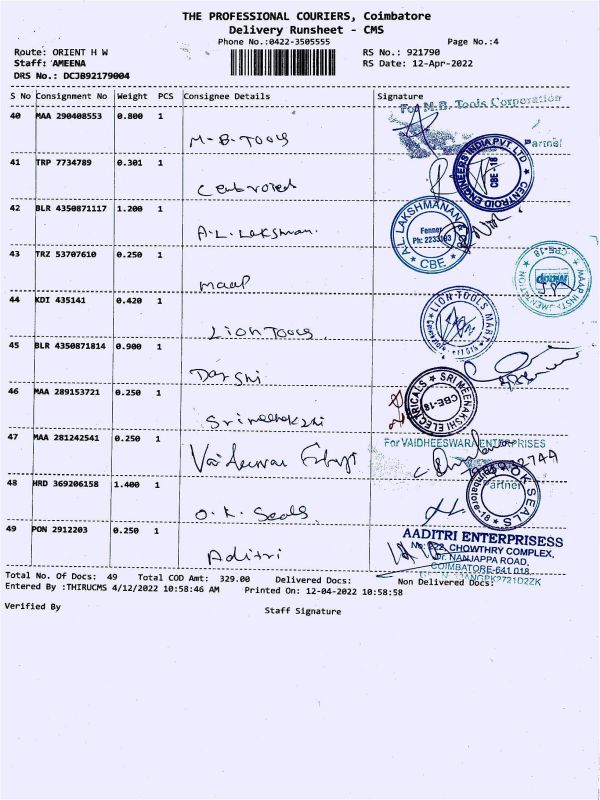 THE PROFESSIONAL COURIERS, Coimbatore
Delivery Runsheet - CMS
Phone No.:0422-3505555
Page No.:4
Route: ORIENT H W
RS No.: 921790
Staff: AMEENA
RS Date: 12-Apr-2022
DRS No.: DCJB92179004
S No Consignment No Weight PCS Consignee Details Signature
For M.B. Tools Corporation
40 MAA 290408553 0.800 1
M-B-Tools
Partner
41 TRP 7734789 0.301 1
CENTROID ENGINEERS INDIA PVT LTD
CBE-18
42 BLR 4350871117 1.200 1
A.L. Lakshman.
A.L. LAKSHMANAN
Fenner
CBE
43 TRZ 53707610 0.250 1
maap
CBE-18
44 KDI 435141 0.420 1
Lion Tools.
LION TOOLS MART
45 BLR 4350871814 0.900 1
Darshi
46 MAA 289153721 0.250 1
SRI MEENAKSHI ELECTRICALS
CBE-18
47 MAA 281242541 0.250 1
For VAIDHEESWARA ENTERPRISES
Partner
48 HRD 369206158 1.400 1
O.K. Seals
OK SEALS
49 PON 2912203 0.250 1
Aditri
AADITRI ENTERPRISESS
CHOWTHRY COMPLEX,
NANJAPPA ROAD,
COIMBATORE-641 018
Total No. Of Docs: 49 Total COD Amt: 329.00 Delivered Docs: Non Delivered Docs:
Entered By :THIRUCMS 4/12/2022 10:58:46 AM Printed On: 12-04-2022 10:58:58
Verified By
Staff Signature